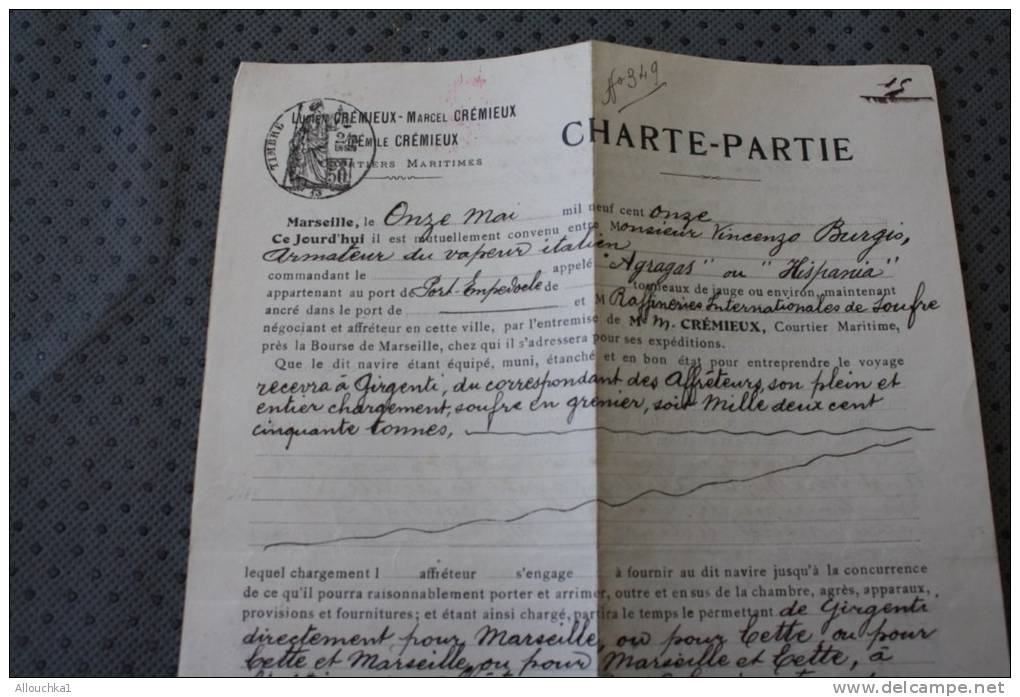 No 349
15
LUCIEN CRÉMIEUX - MARCEL CRÉMIEUX
ÉMILE CRÉMIEUX
COURTIERS MARITIMES
TIMBRE
CHARTE-PARTIE
Marseille, le Onze Mai mil neuf cent onze
Ce Jourd'hui il est mutuellement convenu entre Monsieur Vincenzo Burgis,
armateur du vapeur italien
commandant le appelé "Agragas" ou "Hispania"
appartenant au port de Port-Empedocle de tonneaux de jauge ou environ, maintenant
ancré dans le port de et M Raffineries Internationales de Soufre
négociant et affréteur en cette ville, par l'entremise de M. CRÉMIEUX, Courtier Maritime,
près la Bourse de Marseille, chez qui il s'adressera pour ses expéditions.
Que le dit navire étant équipé, muni, étanché et en bon état pour entreprendre le voyage
recevra à Girgenti, du correspondant des Affréteurs, son plein et
entier chargement, soufre en grenier, soit Mille deux cent
cinquante tonnes,
lequel chargement l affréteur s'engage à fournir au dit navire jusqu'à la concurrence
de ce qu'il pourra raisonnablement porter et arrimer, outre et en sus de la chambre, agrès, apparaux,
provisions et fournitures; et étant ainsi chargé, partira le temps le permettant de Girgenti
directement pour Marseille, ou pour Cette ou pour
Cette et Marseille, ou pour Marseille et Cette, à
Allouchka1
www.delcampe.net